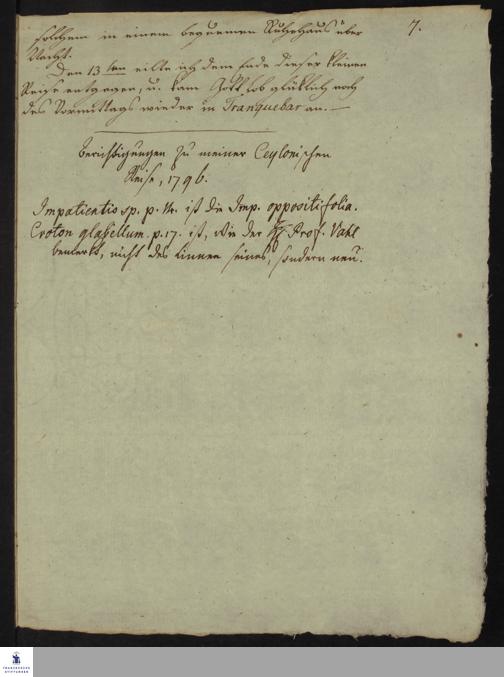 solchem in einem bequemen Ruhehaus über
7.
Nacht.
Den 13ten eilte ich dem Ende dieser kleinen
Reise entgegen, u. kam Gott lob glüklich noch
des Vormittags wieder in Tranquebar an. —
Berichtigungen zu meiner Ceylonischen
Reise, 1796.
Impatientis sp. p. 14. ist die Imp. oppositifolia.
Croton glabellum. p. 17. ist, wie der H Prof. Vahl
bemerkt, nicht des Linnen seines, sondern neu.
FRANCKESCHE
STIFTUNGEN